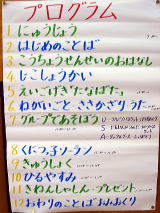 プログラム
1.にゅうじょう
2.はじめのことば
3.こうちょうせんせいのおはなし
4.じこしょうかい
5.えいごげき「たなばた」
6.ねがいごと ささかざりうた
7.グループであそぼう
8.くにっ子ソーラン
9.きゅうしょく
10.ひるやすみ
11.きねんしゃしん・プレゼント
12.おわりのことば おみおくり